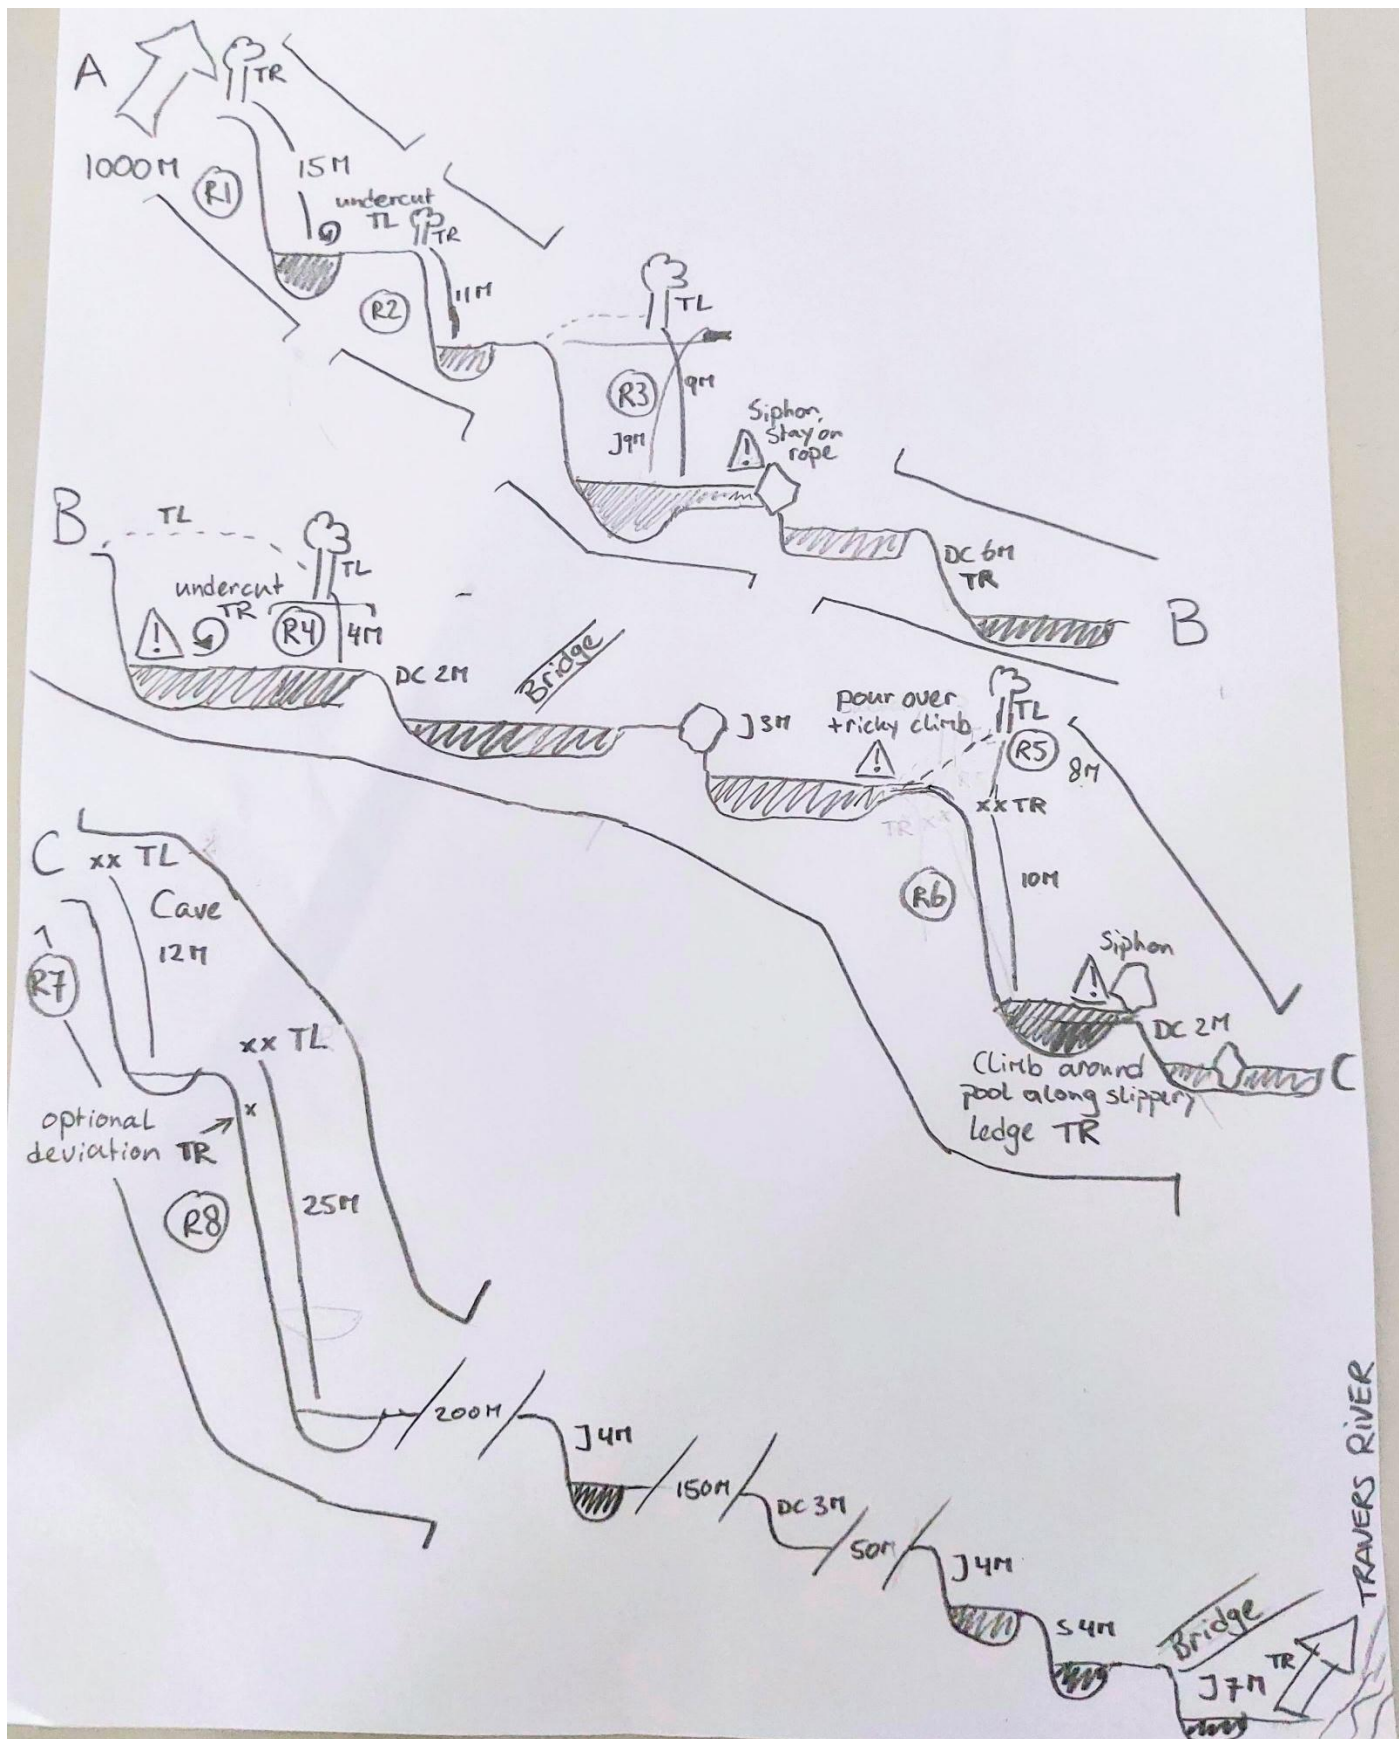 A
TR
1000M
R1
15M
undercut
TL
TR
R2
11M
TL
R3
9M
J9M
Siphon,
stay on
rope
DC 6M
TR
B
B
TL
TL
undercut
TR
R4
4M
DC 2M
Bridge
J 3M
pour over
+ tricky climb
TL
R5
8M
xx TR
TR xx
R6
10M
Siphon
DC 2M
C
Climb around
pool along slippery
ledge TR
C
xx TL
Cave
12M
R7
xx TL
optional
deviation TR
x
R8
25M
200M
J 4M
150M
DC 3M
50M
J 4M
S 4M
Bridge
J 7M
TR
TRAVERS RIVER